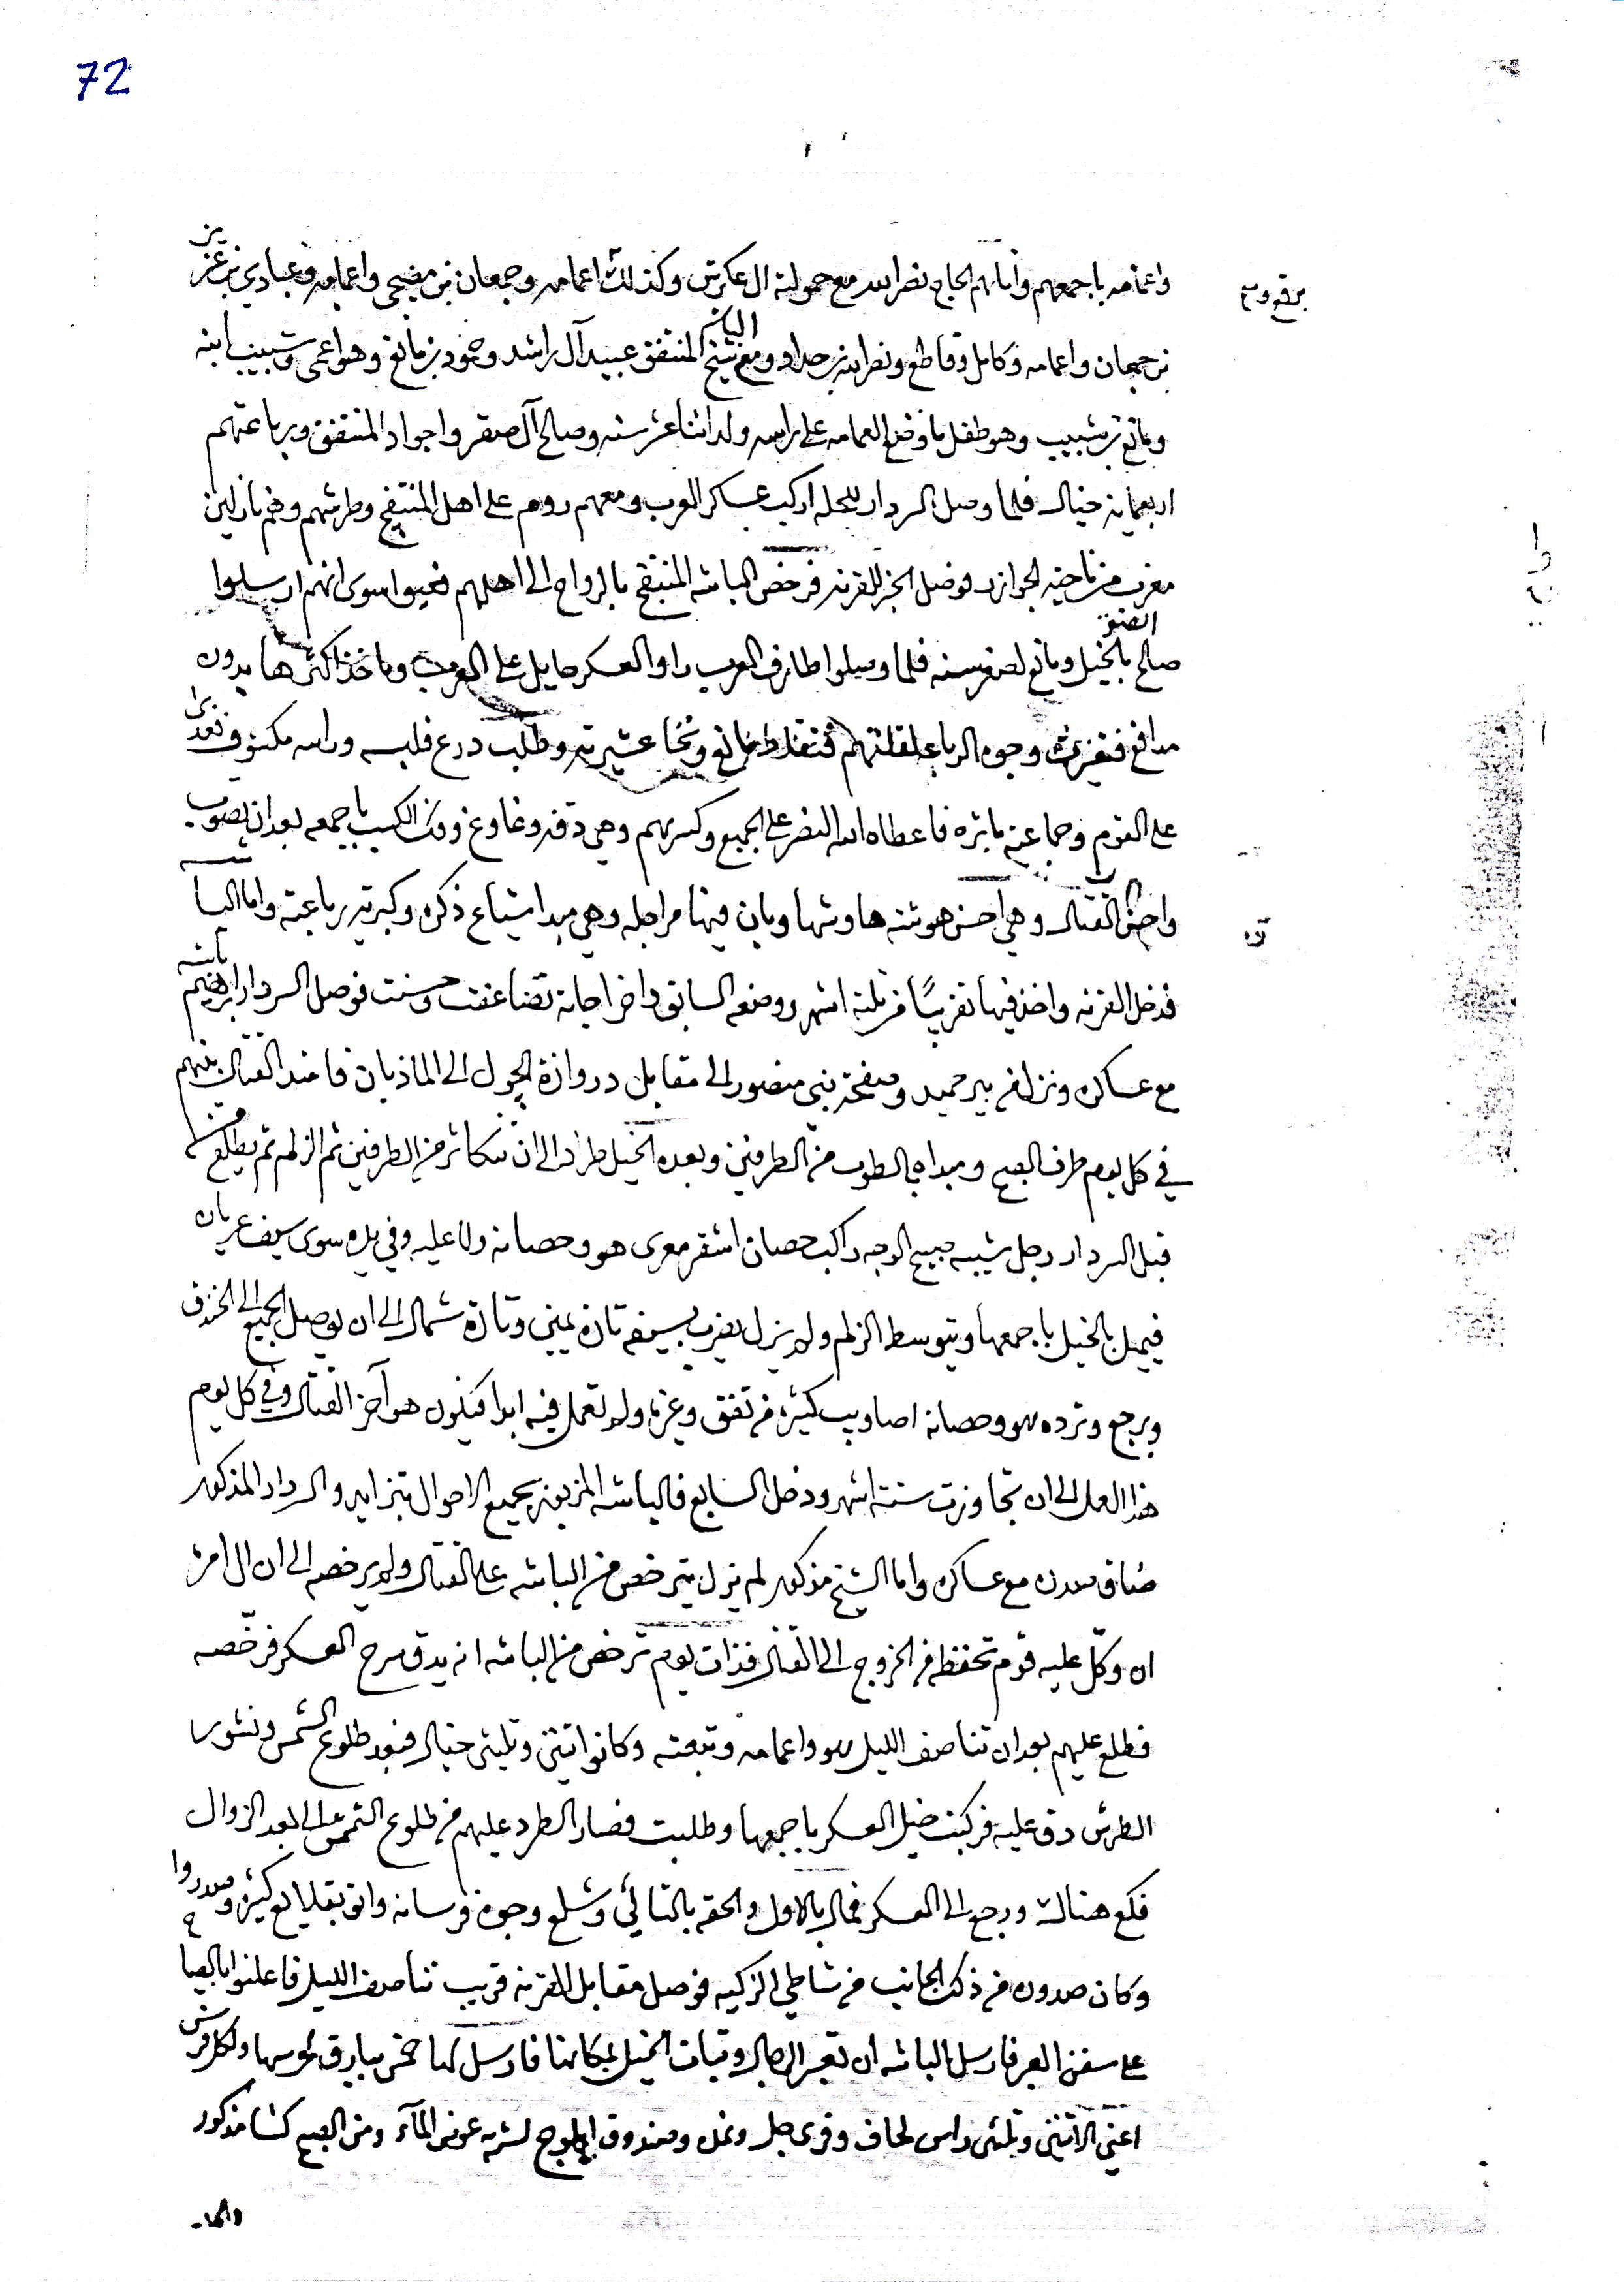 72
واعمامه باجمعهم واتاهم الحاج نصرالله مع حمولته ال عكرش وكذلك اعمامه وجمعان بن مضيحي واعمامه وعبادي بن عزيز
بن جمعان واعمامه وكامل وقاطع ونصرالله بن حداد ومع شيخ المنتفق عبيد آل راشد وحمود بن مانع وهو اعمى وشبيب ابنه
ومانع بن شبيب وهو طفل ما وضع العمامه على راسه وله اثنا عشر سنه وصالح آل صقر واجواد المنتفق ورباعتهم
اربعماية خيال فلما وصل السردار للحله اركب عساكر العرب ومعهم روم على اهل المنتفج وطرشهم وهم نازلين
مغرب من ناحية الجوازر فوصل الخبر للقرنه فرخص الباشه المنتفج بالرواح الى اهلهم فعيوا سوى انهم ارسلوا
صالح بالخيل ومانع لصغر سنه فلما وصلوا طارف العرب راوا العسكر حايل على العرب وماخذ اكثرها بدون
مدافع فتغيرت وجوه الرباعه لقلتهم مانع ونخا عشيرته وطلب درع فلبسه وراسه مكشوف
على القوم وجماعته باثره فاعطاه الله النصر على الجميع وكسرهم وهي دقة وغاوغ وفك الكسب باجمعه بعد ان تصوب
القتال وهي احسن هوشة هاوشها وبان فيها مراجله وهي مبدا شياع ذكره وكبرته رباعته واما الباشه
فدخل القرنه واخذ فيها تقريبًا من ثلثة اشهر ووضعه السابق واخراجاته تضاعفت وحسنت فوصل السردار ابرهيم باشه
مع عساكره ونزل من بير حميد وصفحة بني منصور الى مقابل دروازة الچول الى الماذيان فامتد القتال بينهم
في كل يوم طرف الصبح ومبداه بالطوب من الطرفين وبعده الخيل طراد الى ان تتكاثر من الطرفين ثم الزلم ثم يطلع من
قبل السردار رجل شيبه صبيح الوجه راكب حصان اشقر معرى هو وحصانه ولا عليه وفي يده سوى سيف عريان
فيميل بالخيل باجمعها ويتوسط الزلم ولم يزل يضرب بسيفه تارة يمين وتارة شمال الى ان يوصل الجميع الى الخندق
ويرجع وترده هو وحصانه اصاويب كثيرة من تفق وغيره ولم تعمل فيه ابدا فيكون هو آخر القتال وفي كل يوم
هذا العمل الى ان تجاوزت ستة اشهر ودخل السابع فالباشه المزبور بجميع الاحوال بتزايد والسردار المذكور
ضاق صدره مع عساكره واما الشيخ مذكور لم يزل يترخص من الباشه على القتال ولم يرخصه الى ان ال امره
ان وكّل عليه قوم تحفظه من الخروج الى القتال فذات يوم ترخص من الباشه انه يدق سرح العسكر فرخّصه
فطلع عليهم بعد ان تناصف الليل هو واعمامه وتبعته وكانوا اثنين وثلثين خيال فبعد طلوع الشمس ونشور
الطرش دق عليه فركبت خيل العسكر باجمعها وطلبت فصار الطرد عليهم من طلوع الشمس الى بعد الزوال
فكع هناك ورجع الى العسكر فمال بالاول والحقه بالتالي وشلع وجوه فرسانه واتو بقلايع كثيره وصدروا
وكان صدوره من ذلك الجانب من شاطي الزكيه فوصل مقابل القرنه قريب تناصف الليل فاعلنوا بالصياح
على سفن العبر فارسل الباشه ان تعبر الرجال وتبات الخيل بمكانها فارسل لها خمس بيارق تحرسها ولكل فرس
اعني الاثنين وثلثين راس لحاف وفرى جل وغل وصندوق ابلوج لشربه عوض المآء ومن الصبح كشا مذكور